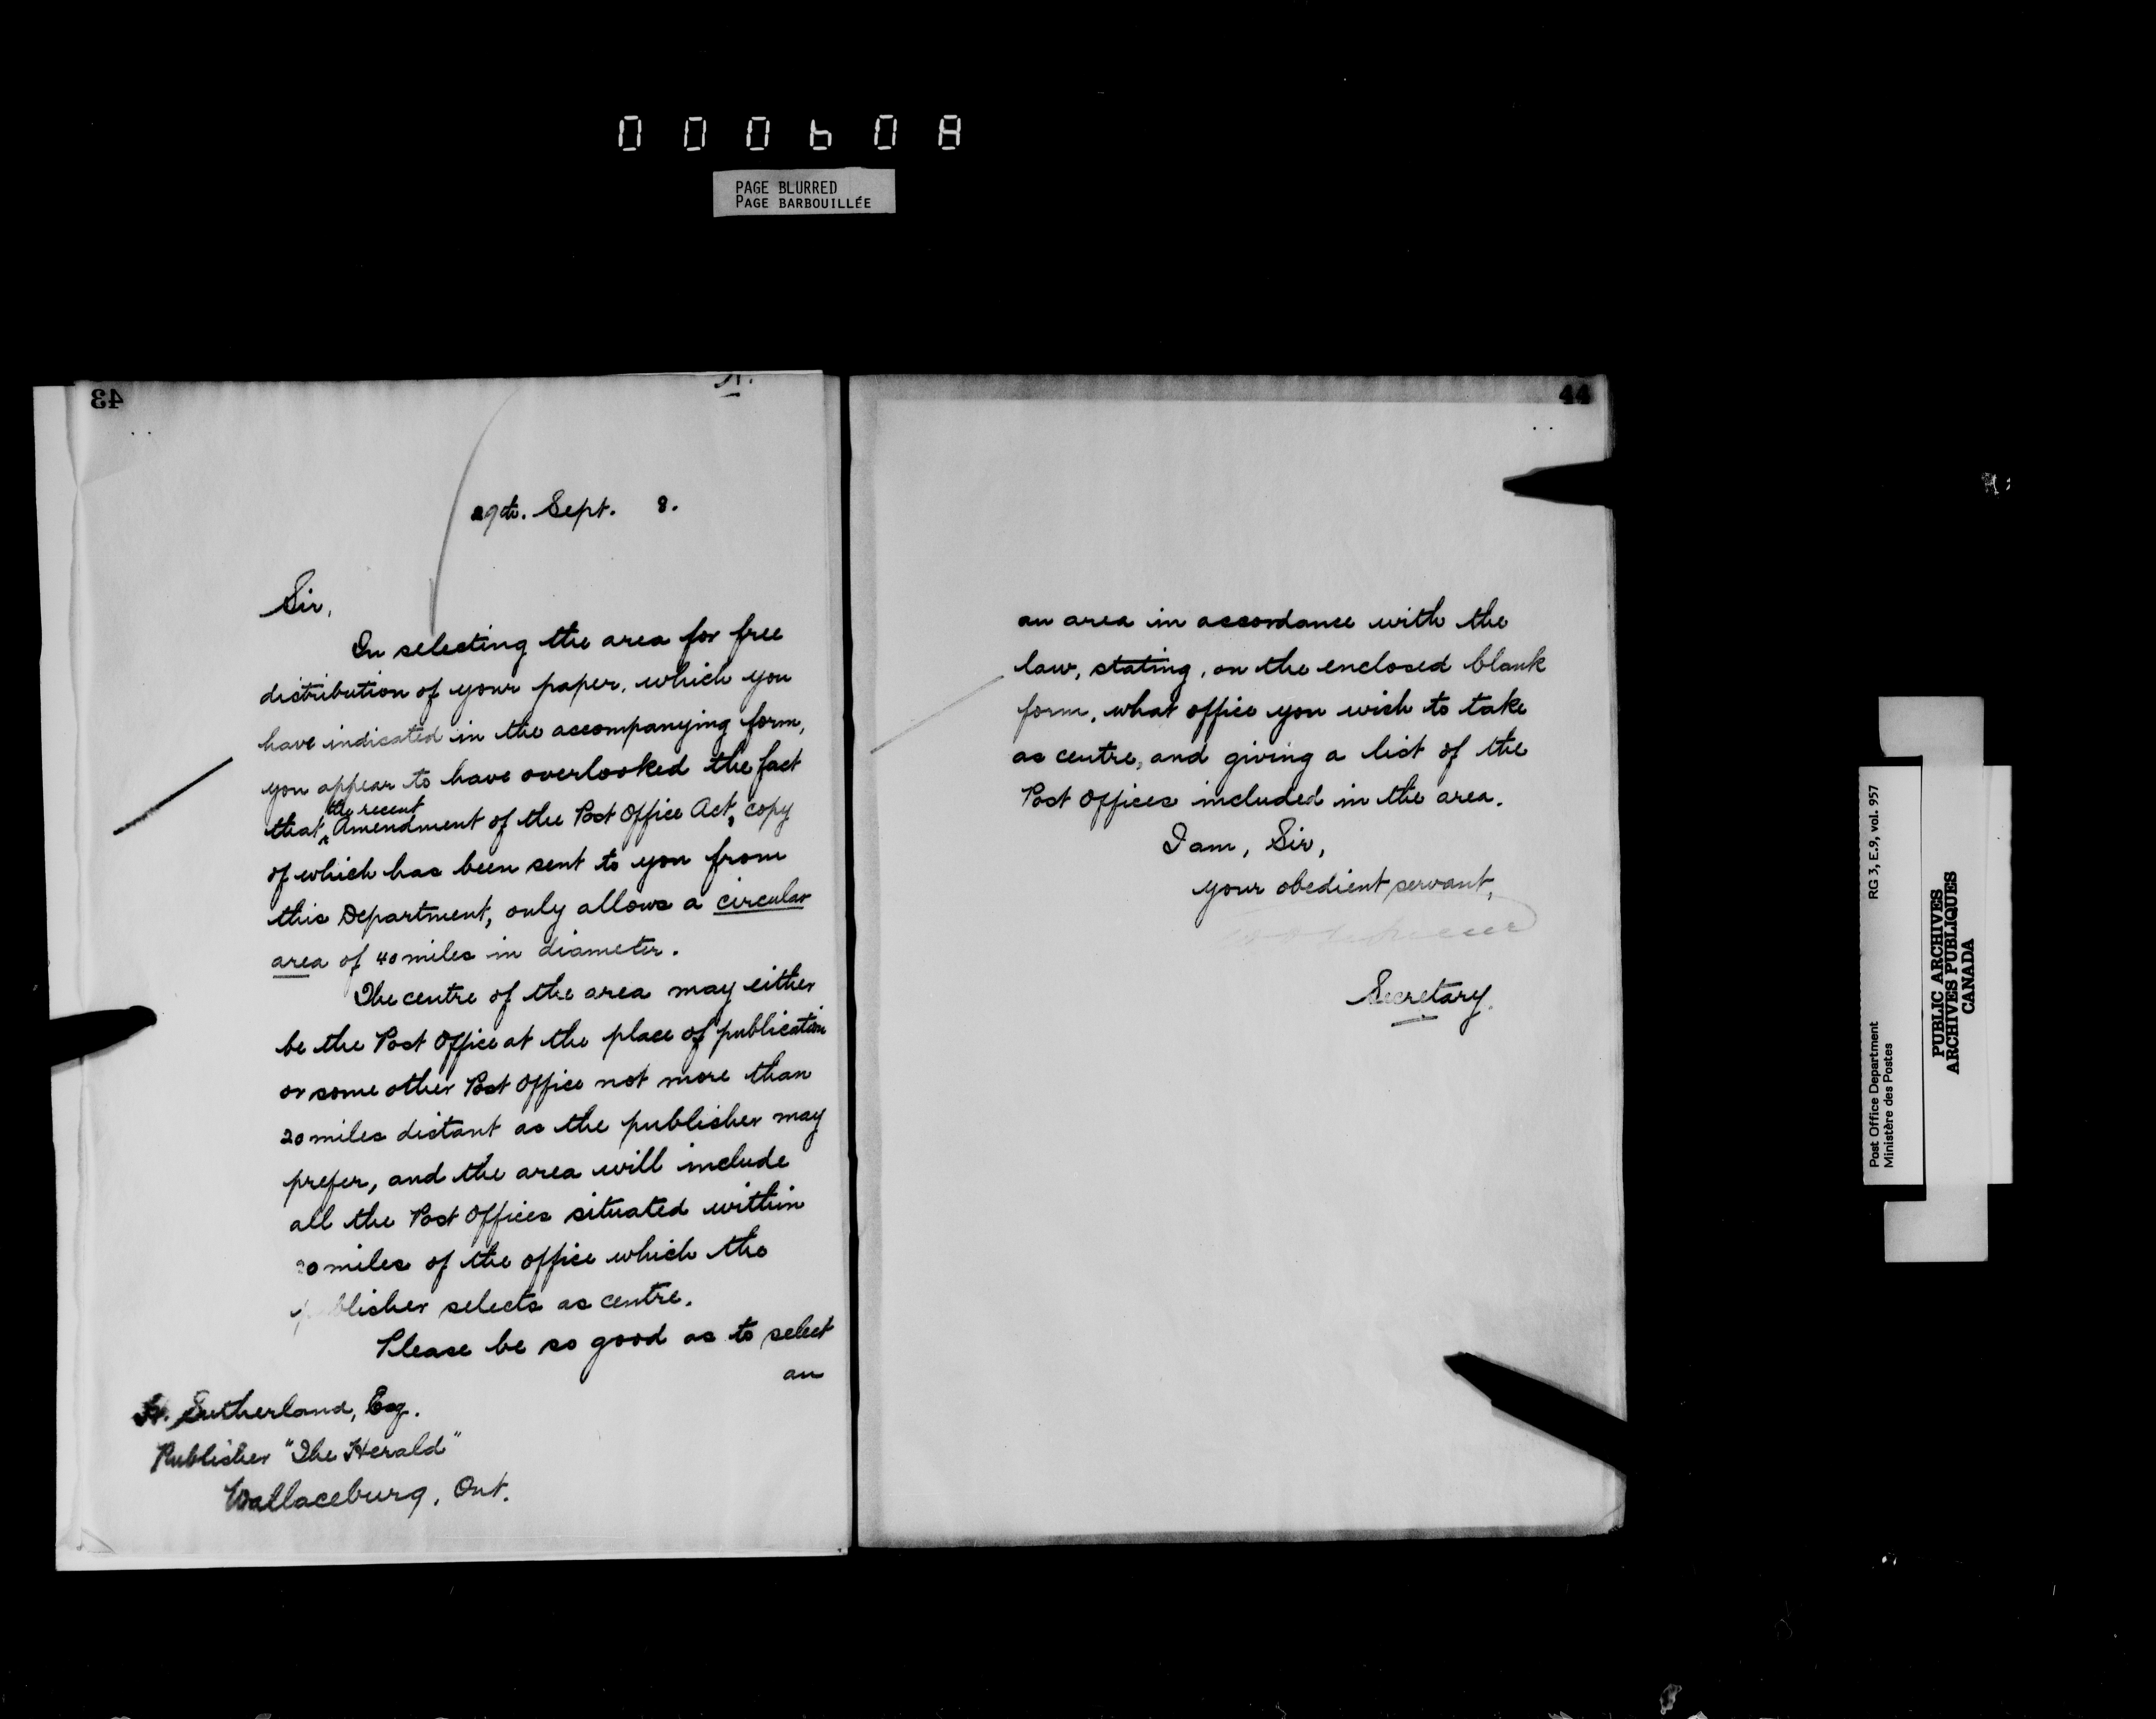 000608
PAGE BLURRED
PAGE BARBOUILLÉE
43
29th. Sept. 8.
Sir,
In selecting the area for free
distribution of your paper, which you
have indicated in the accompanying form,
you appear to have overlooked the fact
the recent
that ^ Amendment of the Post Office Act, copy
of which has been sent to you from
this Department, only allows a circular
area of 40 miles in diameter.
The centre of the area may either
be the Post Office at the place of publication
or some other Post Office not more than
20 miles distant as the publisher may
prefer, and the area will include
all the Post Offices situated within
20 miles of the office which the
publisher selects as centre.
Please be so good as to select
an
Sutherland, Esq.
Publisher "The Herald"
Wallaceburg, Ont.
44
an area in accordance with the
law, stating, on the enclosed blank
form, what office you wish to take
as centre, and giving a list of the
Post Offices included in the area.
I am, Sir,
your obedient servant,
Secretary.
Post Office Department
Ministère des Postes
RG 3, E.9, vol. 957
PUBLIC ARCHIVES
ARCHIVES PUBLIQUES
CANADA